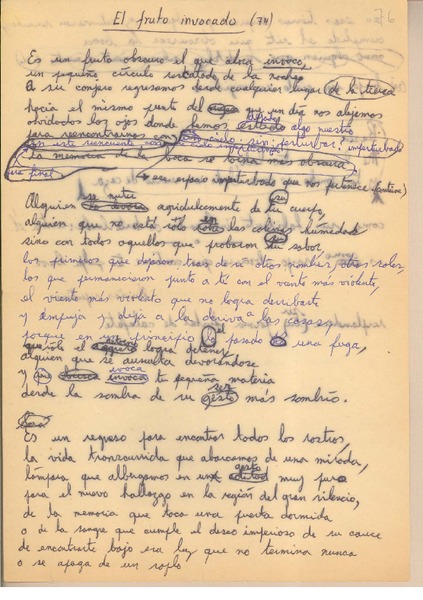 El fruto invocado (74)
76
Es un fruto obscuro el que ahora invoco,
un pequeño círculo rescatado de la noche
A su conjuro regresamos desde cualquier lugar de la tierra
hacia el mismo punto del que un día nos alejamos
olvidados los ojos donde hemos dejado algo nuestro
para reencontrarnos con
la memoria de la boca se torna más obscura
ese espacio imperturbado que nos pertenece
Alguien se nutre agridulcemente de tu cuerpo,
alguien que no está sólo en las colinas húmedas
sino con todos aquellos que probaron su sabor
los primeros que dejaron tras de sí otros nombres, otros soles,
los que permanecieron junto a ti con el viento más violento,
el viento más violento que no logra derribarte
y empuja y deja a la deriva a las cosas
porque en su principio lo pasado es una fuga,
que sólo el logra detener
alguien que se ausculta devorándose
y invoca tu pequeña materia
desde la sombra de su ser más sombrío.
Es un regreso para encontrar todos los rostros,
la vida transcurrida que abarcamos de una mirada,
lámpara que albergamos en un gesto muy puro
para el nuevo hallazgo en la región del gran silencio,
de la memoria que toca una puerta dormida
o de la sangre que cumple el deseo imperioso de su cauce
de encontrarte bajo esa luz que no termina nunca
o se apaga de un soplo